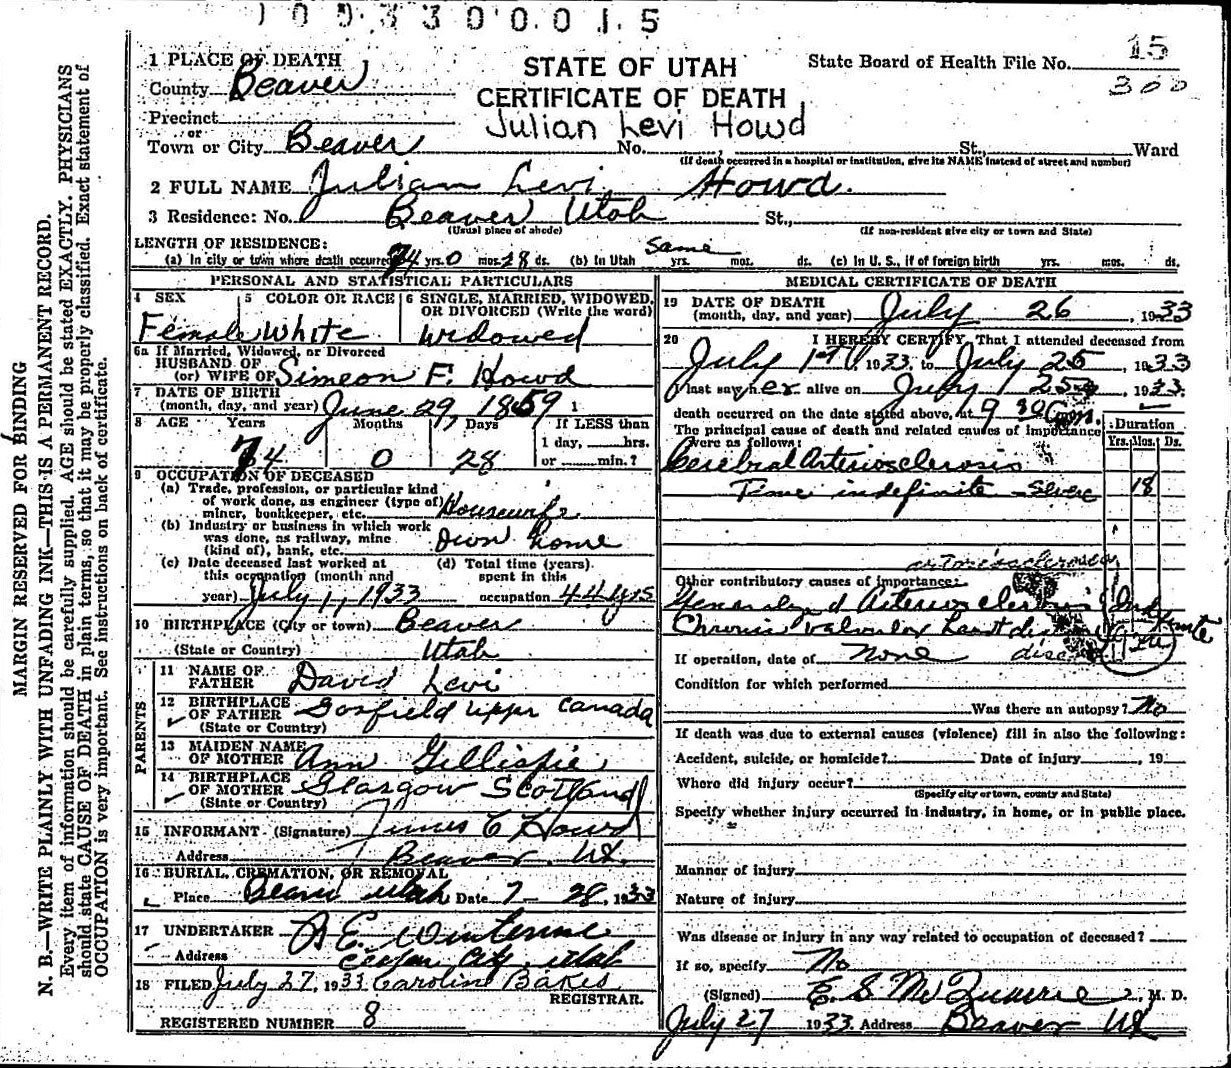 1 0 0 3 3 0 0 0 1 5
MARGIN RESERVED FOR BINDING
N. B.—WRITE PLAINLY WITH UNFADING INK—THIS IS A PERMANENT RECORD.
Every item of information should be carefully supplied. AGE should be stated EXACTLY. PHYSICIANS
should state CAUSE OF DEATH in plain terms, so that it may be properly classified. Exact statement of
OCCUPATION is very important. See instructions on back of certificate.
STATE OF UTAH
CERTIFICATE OF DEATH
Julian Levi Howd
State Board of Health File No. 15
300
1 PLACE OF DEATH
County Beaver
Precinct
or
Town or City Beaver No. , St., Ward
(If death occurred in a hospital or institution, give its NAME instead of street and number)
2 FULL NAME Julian Levi Howd.
3 Residence: No. Beaver Utah St.,
(Usual place of abode) (If non-resident give city or town and State)
LENGTH OF RESIDENCE:
(a) In city or town where death occurred 74 yrs. 0 mos. 28 ds. (b) In Utah Same yrs. mos. ds. (c) In U. S., if of foreign birth yrs. mos. ds.
PERSONAL AND STATISTICAL PARTICULARS
4 SEX Female
5 COLOR OR RACE White
6 SINGLE, MARRIED, WIDOWED, OR DIVORCED (Write the word) Widowed
6a If Married, Widowed, or Divorced
HUSBAND OF
(or) WIFE OF Simeon F. Howd
7 DATE OF BIRTH
(month, day, and year) June 29, 1859 1
8 AGE Years Months Days If LESS than
1 day, hrs.
74 0 28 or min.?
9 OCCUPATION OF DECEASED
(a) Trade, profession, or particular kind
of work done, as engineer (type of)
miner, bookkeeper, etc. Housewife
(b) Industry or business in which work
was done, as railway, mine
(kind of), bank, etc. Own home
(c) Date deceased last worked at
this occupation (month and
year) July 1, 1933
(d) Total time (years)
spent in this
occupation 44 yrs
10 BIRTHPLACE (City or town) Beaver
(State or Country) Utah
PARENTS
11 NAME OF
FATHER David Levi
12 BIRTHPLACE
OF FATHER Gosfield Upper Canada
(State or Country)
13 MAIDEN NAME
OF MOTHER Ann Gillispie
14 BIRTHPLACE
OF MOTHER Glasgow Scotland
(State or Country)
15 INFORMANT (Signature) James C Howd
Address Beaver, Ut.
16 BURIAL, CREMATION, OR REMOVAL
Place Beaver Utah Date 7 - 28, 1933
17 UNDERTAKER
Address Cedar City, Utah
18 FILED July 27, 1933 Caroline Bakes
REGISTRAR.
REGISTERED NUMBER 8
MEDICAL CERTIFICATE OF DEATH
19 DATE OF DEATH
(month, day, and year) July 26, 1933
20 I HEREBY CERTIFY, That I attended deceased from
July 1st, 1933 to July 25, 1933
I last saw her alive on July 25, 1933.
death occurred on the date stated above, at 9 30 a m.
The principal cause of death and related causes of importance
were as follows:
Duration
Yrs. Mos. Ds.
Cerebral Arteriosclerosis
Time indefinite - Severe 18
arteriosclerosis
Other contributory causes of importance:
Generalized Arteriosclerosis Indefinite
Chronic valvular heart disease
disease
If operation, date of None
Condition for which performed
Was there an autopsy? No
If death was due to external causes (violence) fill in also the following:
Accident, suicide, or homicide? Date of injury , 19
Where did injury occur?
(Specify city or town, county and State)
Specify whether injury occurred in industry, in home, or in public place.
Manner of injury
Nature of injury
Was disease or injury in any way related to occupation of deceased?
If so, specify No
(Signed) E. S McQuarrie, M. D.
July 27 1933 Address Beaver Ut